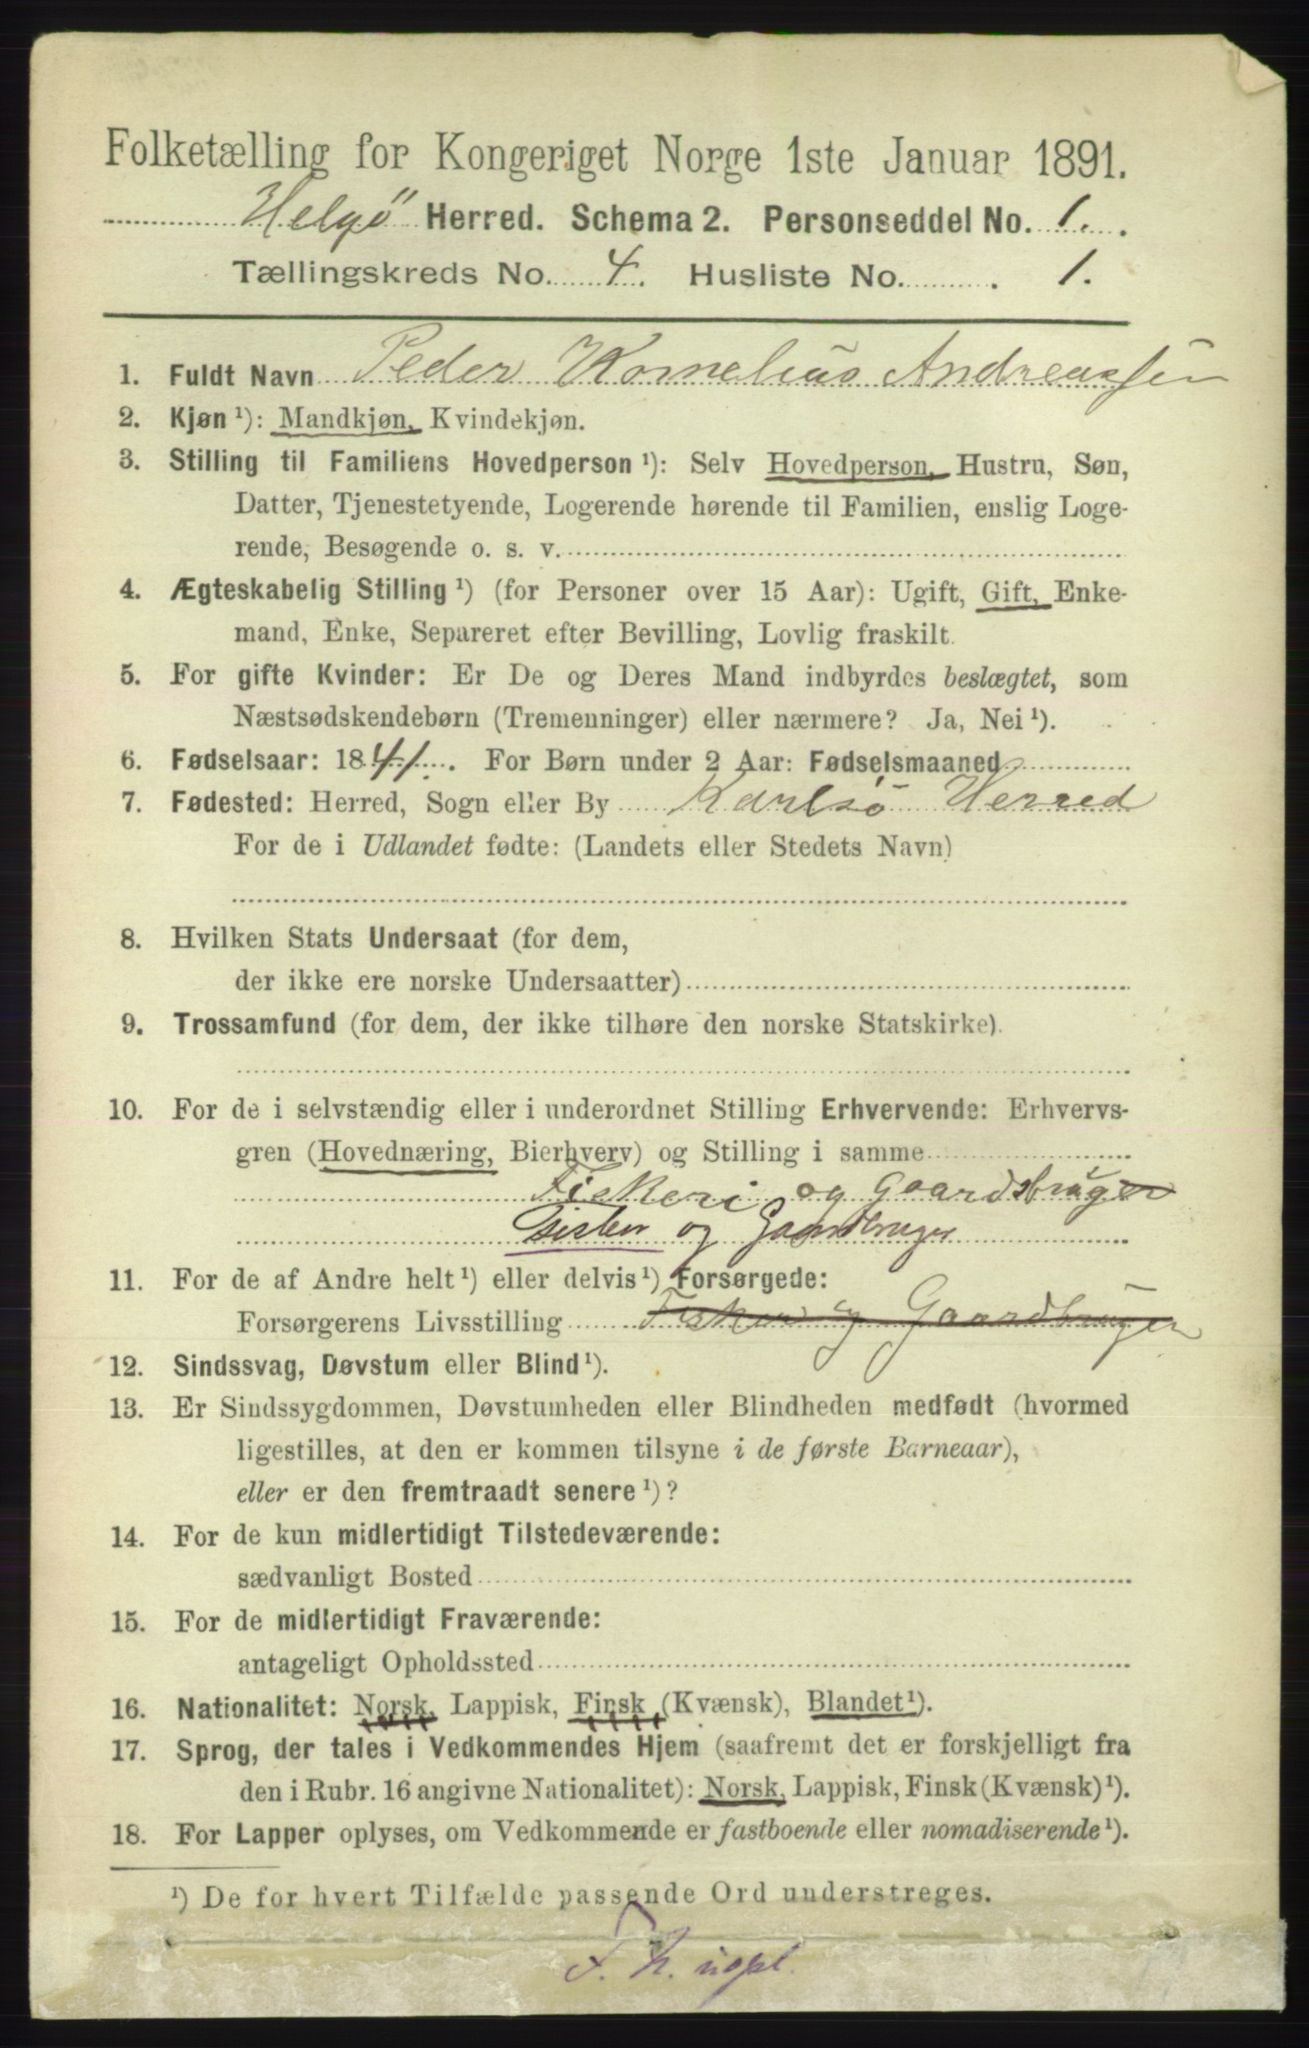 Folketælling for Kongeriget Norge 1ste Januar 1891.
Helgö Herred. Schema 2. Personseddel No. 1.
Tællingskreds No. 4. Husliste No. 1.
1. Fuldt Navn Peder Kornelius Andreassen
2. Kjøn ¹): Mandkjøn, Kvindekjøn.
3. Stilling til Familiens Hovedperson ¹): Selv Hovedperson, Hustru, Søn,
Datter, Tjenestetyende, Logerende hørende til Familien, enslig Loge-
rende, Besøgende o. s. v.
4. Ægteskabelig Stilling ¹) (for Personer over 15 Aar): Ugift, Gift, Enke-
mand, Enke, Separeret efter Bevilling, Lovlig fraskilt.
5. For gifte Kvinder: Er De og Deres Mand indbyrdes beslægtet, som
Næstsødskendebørn (Tremenninger) eller nærmere? Ja, Nei ¹).
6. Fødselsaar: 1841. For Børn under 2 Aar: Fødselsmaaned
7. Fødested: Herred, Sogn eller By Karlsö Herred
For de i Udlandet fødte: (Landets eller Stedets Navn)
8. Hvilken Stats Undersaat (for dem,
der ikke ere norske Undersaatter)
9. Trossamfund (for dem, der ikke tilhøre den norske Statskirke).
10. For de i selvstændig eller i underordnet Stilling Erhvervende: Erhvervs-
gren (Hovednæring, Bierhverv) og Stilling i samme
Fiskeri og Gaardsbruger
Fisker og Gaardbruger
11. For de af Andre helt ¹) eller delvis ¹) Forsørgede:
Forsørgerens Livsstilling Fisker og Gaardbruger
12. Sindssvag, Døvstum eller Blind ¹).
13. Er Sindssygdommen, Døvstumheden eller Blindheden medfødt (hvormed
ligestilles, at den er kommen tilsyne i de første Barneaar),
eller er den fremtraadt senere ¹)?
14. For de kun midlertidigt Tilstedeværende:
sædvanligt Bosted
15. For de midlertidigt Fraværende:
antageligt Opholdssted
16. Nationalitet: Norsk, Lappisk, Finsk (Kvænsk), Blandet ¹).
17. Sprog, der tales i Vedkommendes Hjem (saafremt det er forskjelligt fra
den i Rubr. 16 angivne Nationalitet): Norsk, Lappisk, Finsk (Kvænsk) ¹).
18. For Lapper oplyses, om Vedkommende er fastboende eller nomadiserende ¹).
¹) De for hvert Tilfælde passende Ord understreges.